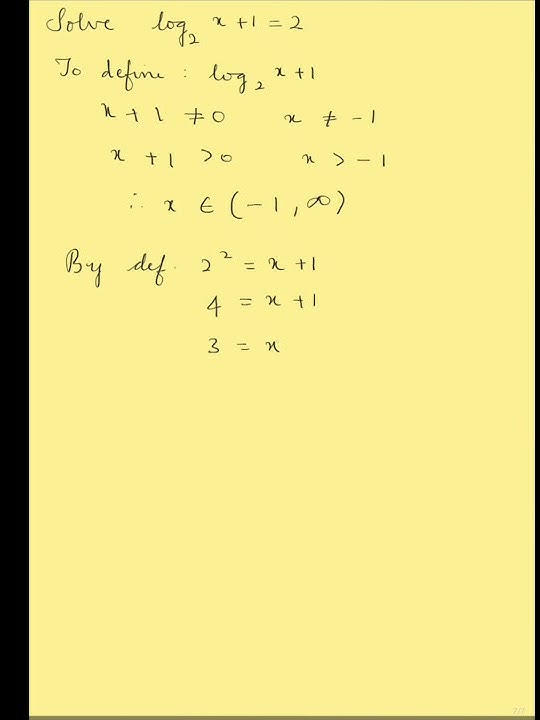 Solve log₂ x + 1 = 2
To define : log₂ x + 1
x + 1 ≠ 0 x ≠ -1
x + 1 > 0 x > -1
∴ x ∈ (-1, ∞)
By def. 2² = x + 1
4 = x + 1
3 = x
7/7